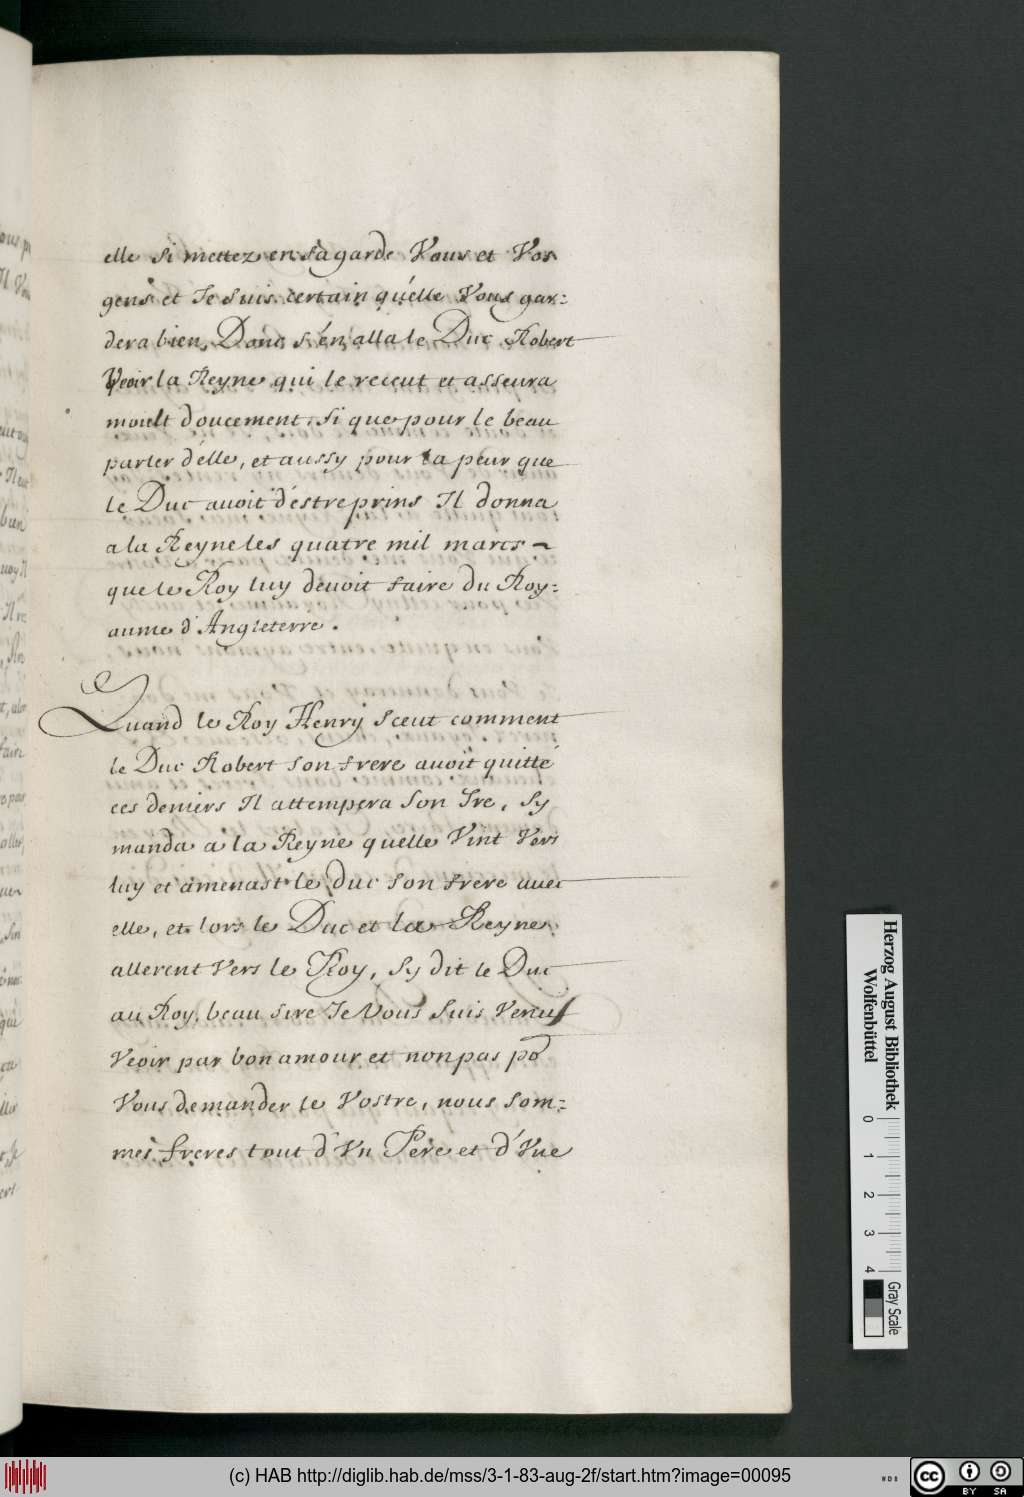 elle si mettez en sa garde Vous et Vos
gens et Je suis certain qu'elle Vous gar=
dera bien, Donc s'en alla le Duc Robert
Veoir la Reyne qui le receut et asseura
moult doucement, si que pour le beau
parler d'elle, et aussy pour la peur que
le Duc avoit d'estre prins Il donna
a la Reyne les quatre mil marcs ~
que le Roy luy devoit faire du Roy=
aume d'Angleterre.
Quand le Roy Henry sceut comment
le Duc Robert son frere avoit quitté
ces deniers Il attempera son Ire, Sy
manda a la Reyne quelle Vint Vers
luy et amenast le Duc son frere avec
elle, et lors le Duc et la Reyne
allerent Vers le Roy, Sy dit le Duc
au Roy, beau sire Je Vous suis Venus
Veoir par bon amour et non pas po
Vous demander le Vostre, nous som=
mes freres tout d'Vn Pere et d'Vne
Herzog August Bibliothek
Wolfenbüttel
0 1 2 3 4
Gray Scale
(c) HAB http://diglib.hab.de/mss/3-1-83-aug-2f/start.htm?image=00095
WDB
CC BY SA